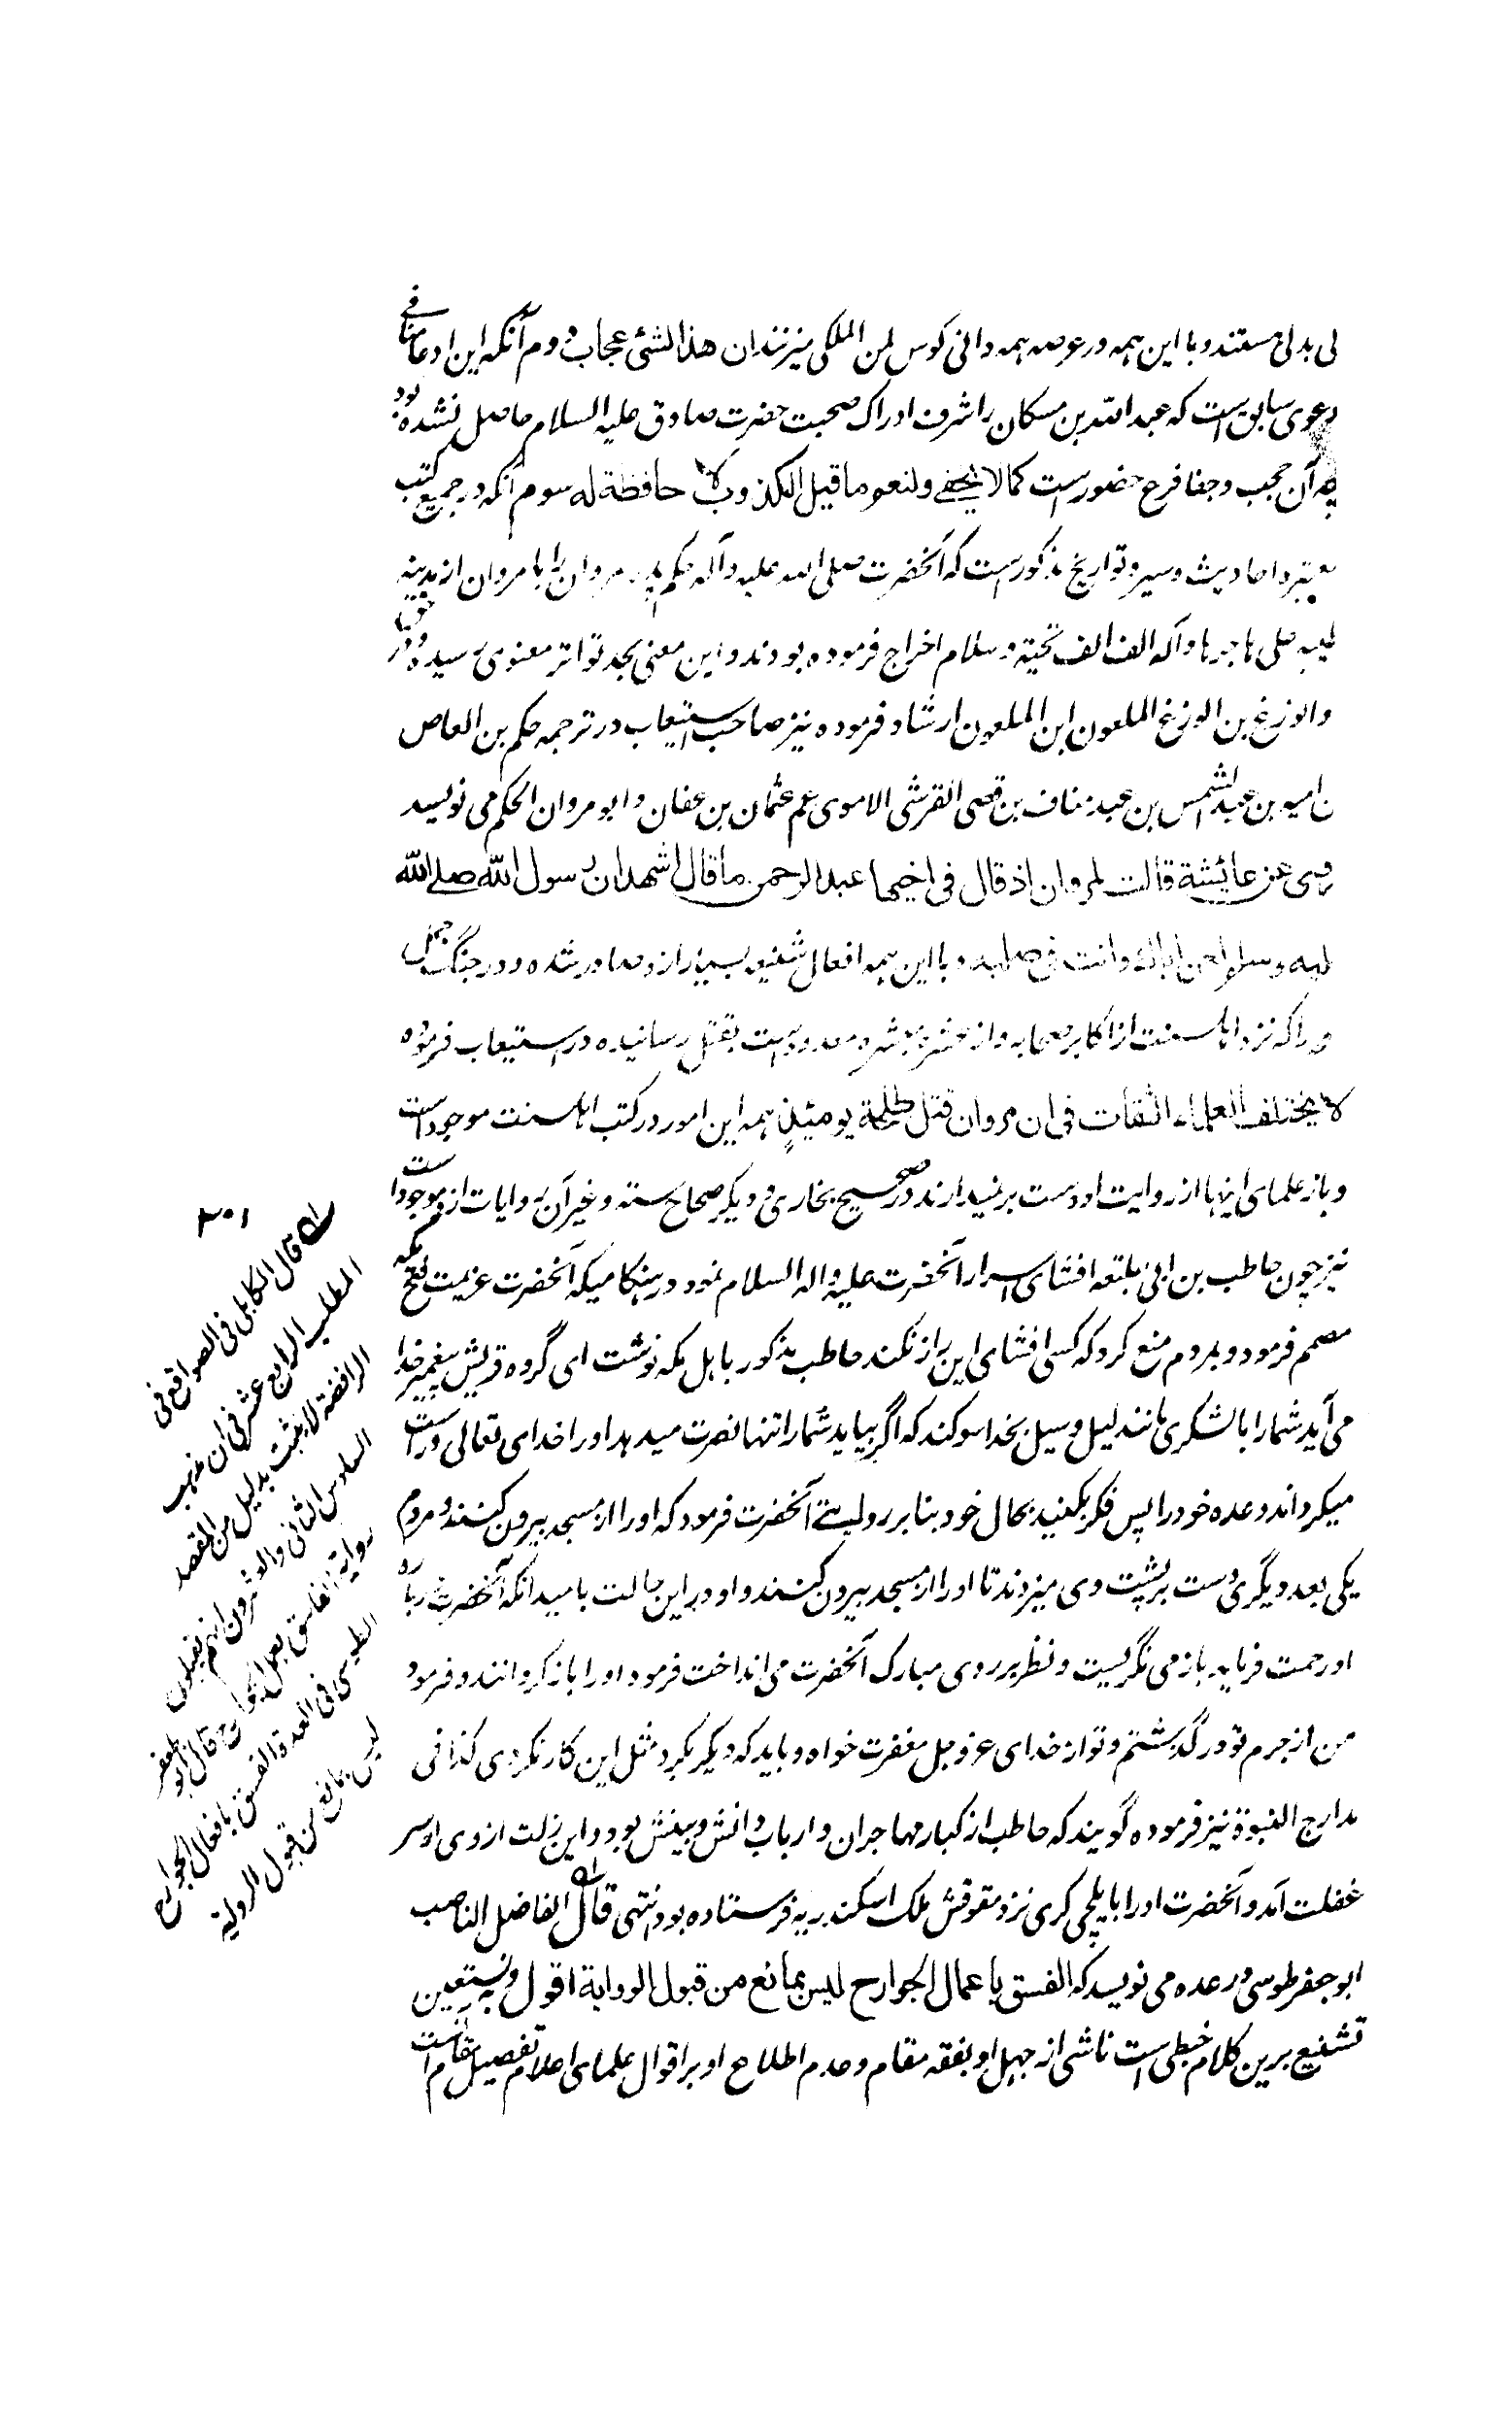 لی بدلی مستند و با این همه در عرصه همه دانی کوس لمن الملکی میزنند ان هذا لشئ عجاب دوم آنکه این ادعا منافی
دعوی سابق است که عبد الله بن مسکان را شرف ادراک صحبت حضرت صادق علیه السلام حاصل نشده بود
چه آن حجب و جفا فرع حضور است کما لا یخفی ولنعم ما قیل الکذوب لا حافظة له سوم آنکه در جمیع کتب
معتبره احادیث و سیر و تواریخ مذکور است که آنحضرت صلی الله علیه و آله حکم پدر مروان را با مروان از مدینه
طیبه صلی الله علی هاجرها و آله الف الف تحیة و سلام اخراج فرموده بودند و این معنی بحد تواتر معنوی رسیده و در حق
والوزغ بن الوزغ الملعون ابن الملعون ارشاد فرموده نیز صاحب استیعاب در ترجمه حکم بن العاص
ن امیه بن عبد الشمس بن عبد مناف بن قصی القرشی الاموی عم عثمان بن عفان و ابو مروان الحکم می نویسد
روی عن عائشة قالت لمروان اذ قال فی اخیها عبد الرحمن ما قال اشهد ان رسول الله صلی الله
علیه وسلم لعن اباک وانت فی صلبه و با این همه افعال شنیعه بسیار از و صادر شده و در جنگ جمل
را که نزد اهلسنت از اکابر صحابه و از عشره مبشره معدود است بقتل رسانیده در استیعاب فرموده
لا یختلف العلماء الثقات فی ان مروان قتل طلحة یومئذ همه این امور در کتب اهلسنت موجود است
و باز علمای اینها از روایت او دست برنمیدارند در صحیح بخاری و دیگر صحاح سته و غیر آن روایات ازو موجود است
نیز چون حاطب بن ابی بلتعه افشای اسرار آنحضرت علیه و اله السلام نمود در هنگامیکه آنحضرت عزیمت فتح مکه
مصمم فرمود و مردم منع کرد که کسی افشای این راز نکند حاطب مذکور باهل مکه نوشت ای گروه قریش پیغمبر خدا
می آید شما را با لشکری مانند لیل و سیل بخدا سوگند که اگر بیاید شما را تنها نصرت میدهد او را خدای تعالی و راست
میگرداند وعده خود را پس فکر بکنید بحال خود بنابر آنحضرت فرمود که او را از مسجد بیرون کنند و مردم
یکی بعد دیگری دست بر پشت وی میزدند تا او را از مسجد بیرون کنند و او در این حالت بامید انکه آنحضرت درباره
او رحمت فرماید باز می نگریست و نظر بر روی مبارک آنحضرت می انداخت فرمود او را باز گردانند و فرمود
من از جرم تو درگذشتم و تو از خدای عز و جل مغفرت خواه و باید که دیگر نگردی مثل این کار نکردی کذا فی
مدارج النبوة نیز فرموده گویند که حاطب از کبار مهاجران و ارباب دانش و بینش بود و این زلت از وی از سر
غفلت آمد و آنحضرت او را بایلچی گری نزد مقوقش ملک اسکندریه فرستاده بود انتهی قال الفاضل الناصب
ابو جعفر طوسی در عده می نویسد که الفسق باعمال الجوارح لیس بمانع من قبول الروایة اقول و به نستعین
تشنیع برین کلام خبطی است ناشی از جهل او بفقه مقام و عدم اطلاع او بر اقوال علمای اعلام تفصیل مقام است
قال الکابلی فی الصواقع فی
المطلب الرابع عشر فی ان مذهب
الرافضة لا یثبت بدلیل من المقصد
السادس الثانی والعشرون انهم یقبلون
روایة الفاسق بعمل الجوارح قال ابو جعفر
الطوسی فی العدة الفسق بافعال الجوارح
لیس بمانع من قبول الروایة